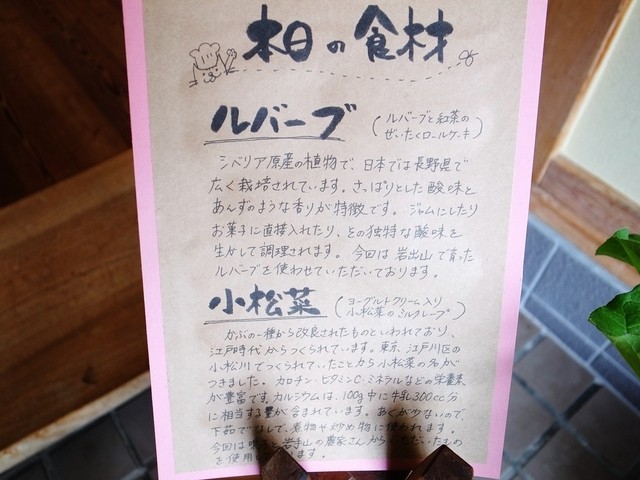 本日の食材
ルバーブ
(ルバーブと紅茶の
ぜいたくロールケーキ)
シベリア原産の植物で、日本では長野県で
広く栽培されています。さっぱりとした酸味と
あんずのような香りが特徴です。ジャムにしたり
お菓子に直接入れたり、その独特な酸味を
生かして調理されます。今回は岩出山で育った
ルバーブを使わせていただいております。
小松菜
(ヨーグルトクリーム入り
小松菜のミルクレープ)
かぶの一種から改良されたものといわれており、
江戸時代からつくられています。東京、江戸川区の
小松川でつくられていたことから小松菜の名が
つきました。カロチン・ビタミンC・ミネラルなどの栄養素
が豊富です。カルシウムは、100g中に牛乳300cc分
に相当する量が含まれています。あくが少ないので
下茹でなしで、煮物や炒め物に使われます。
今回は 岩手山の農家さんからいただいたもの
を使用 います。